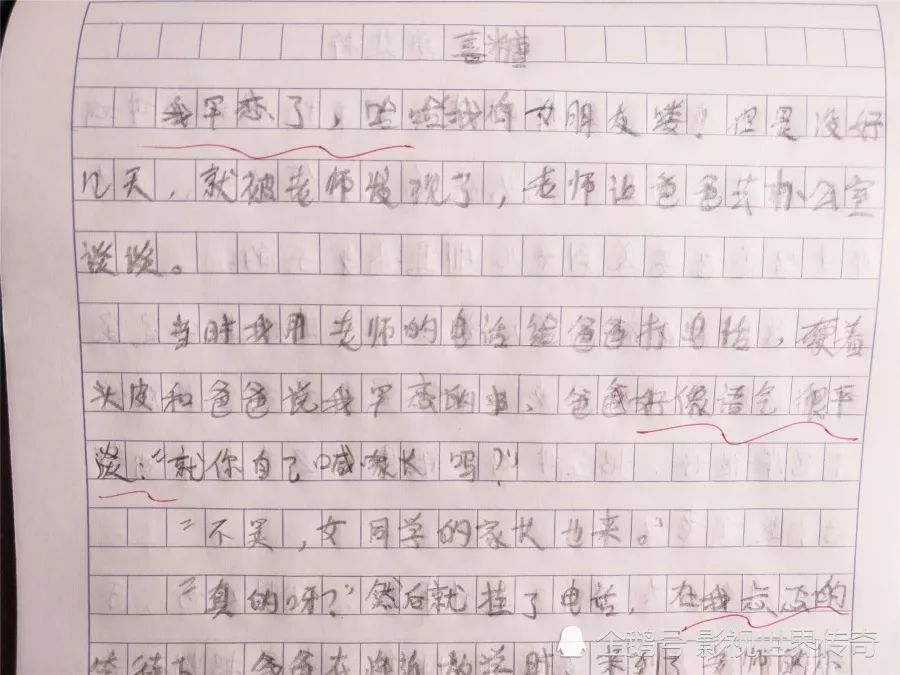 喜糖
我早恋了，哈哈我有女朋友喽！但是没好
几天，就被老师发现了，老师让爸爸去办公室
谈谈。
当时我用老师的电话给爸爸打电话，硬着
头皮和爸爸说我早恋的事、爸爸好像语气很平
淡："就你自己喊家长吗？"
"不是，女同学的家长也来。"
"真的呀？"然后就挂了电话，在我忐忑的
等待下，爸爸在临近放学时，来到了老师的办
企鹅号 影视世界传奇